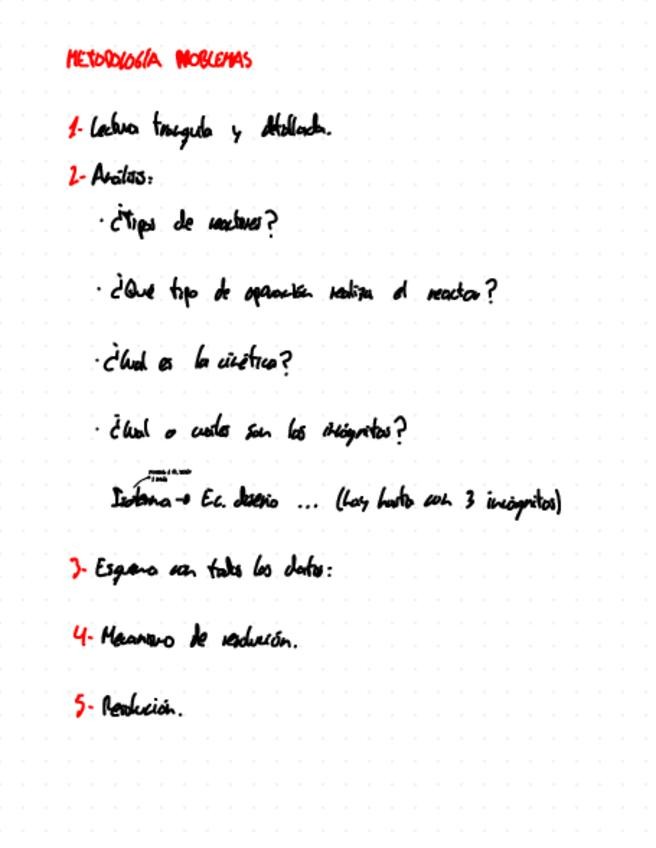 METODOLOGÍA PROBLEMAS
1- Lectura tranquila y detallada.
2- Análisis:
· ¿Tipos de reactores?
· ¿Qué tipo de operación realiza el reactor?
· ¿Cual es la cinética?
· ¿Cual o cuales son las incógnitas?
Isoterma → Ec. diseño ... (hay hasta con 3 incógnitas)
3- Esquema con todos los datos:
4- Mecanismo de resolución.
5- Resolución.